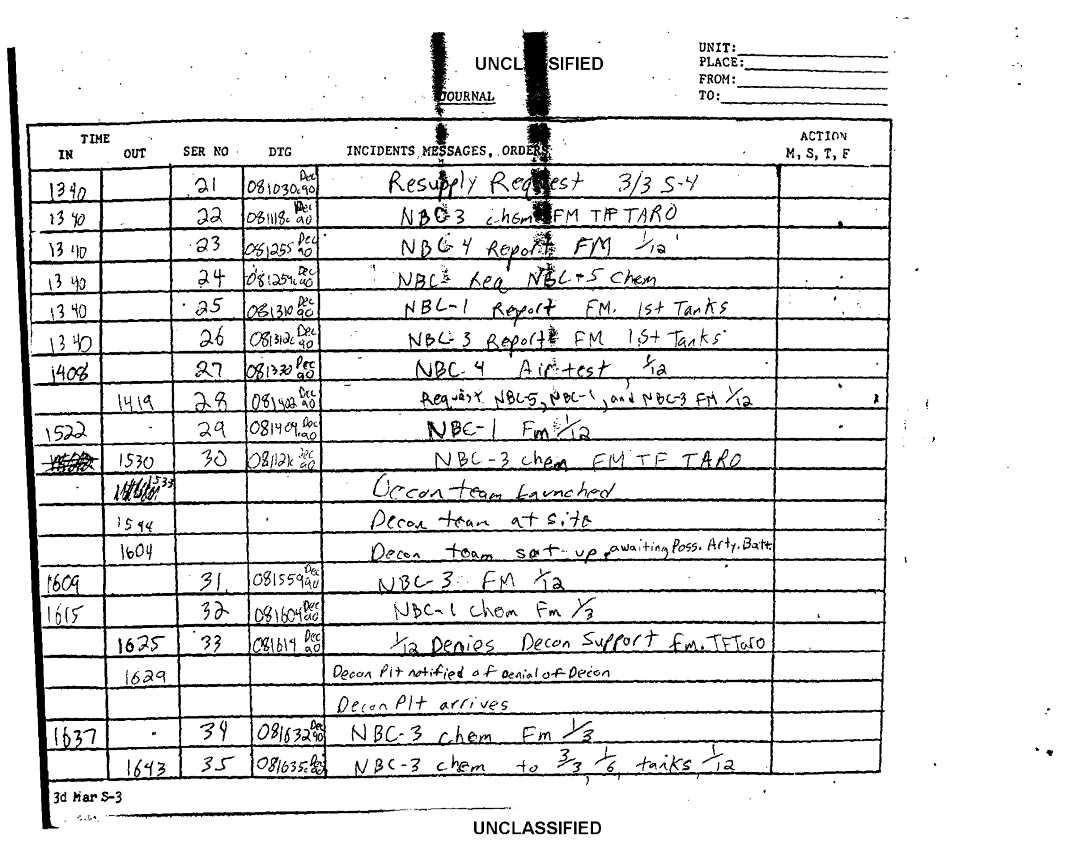 UNCLASSIFIED
UNIT:
PLACE:
FROM:
TO:
JOURNAL
TIME
IN OUT SER NO DTG INCIDENTS, MESSAGES, ORDERS ACTION M, S, T, F
1340 21 081030c Dec 90 Resupply Request 3/3 S-4
1340 22 081118c Dec 90 NBC-3 chem FM TF TARO
1340 23 081255 Dec 90 NBC-4 Report FM 1/12
1340 24 081254c Dec 90 NBC Req NBC-5 Chem
1340 25 081310 Dec 90 NBC-1 Report FM. 1st Tanks
1340 26 081312c Dec 90 NBC-3 Report FM 1st Tanks
1408 27 081330 Dec 90 NBC-4 Air test, 1/12
1419 28 081402 Dec 90 Request NBC-5, NBC-1, and NBC-3 FM 1/12
1522 29 081409 Dec 90 NBC-1 Fm 1/12
1530 30 08112 Dec 90 NBC-3 chem FM TF TARO
1533 Decon team Launched
1544 Decon team at site
1604 Decon team set-up, awaiting Poss. Arty. Batt
1609 31 081559 Dec 90 NBC-3 FM 1/12
1615 32 081604 Dec 90 NBC-1 chem Fm 1/3
1625 33 081614 Dec 90 1/12 Denies Decon Support fm. TF Taro
1629 Decon Plt notified of Denial of Decon
Decon Plt arrives
1637 34 081632 Dec 90 NBC-3 chem Fm 1/3
1643 35 081635c Dec 90 NBC-3 chem to 3/3, 1/6, tanks, 1/12
3d Mar S-3
UNCLASSIFIED